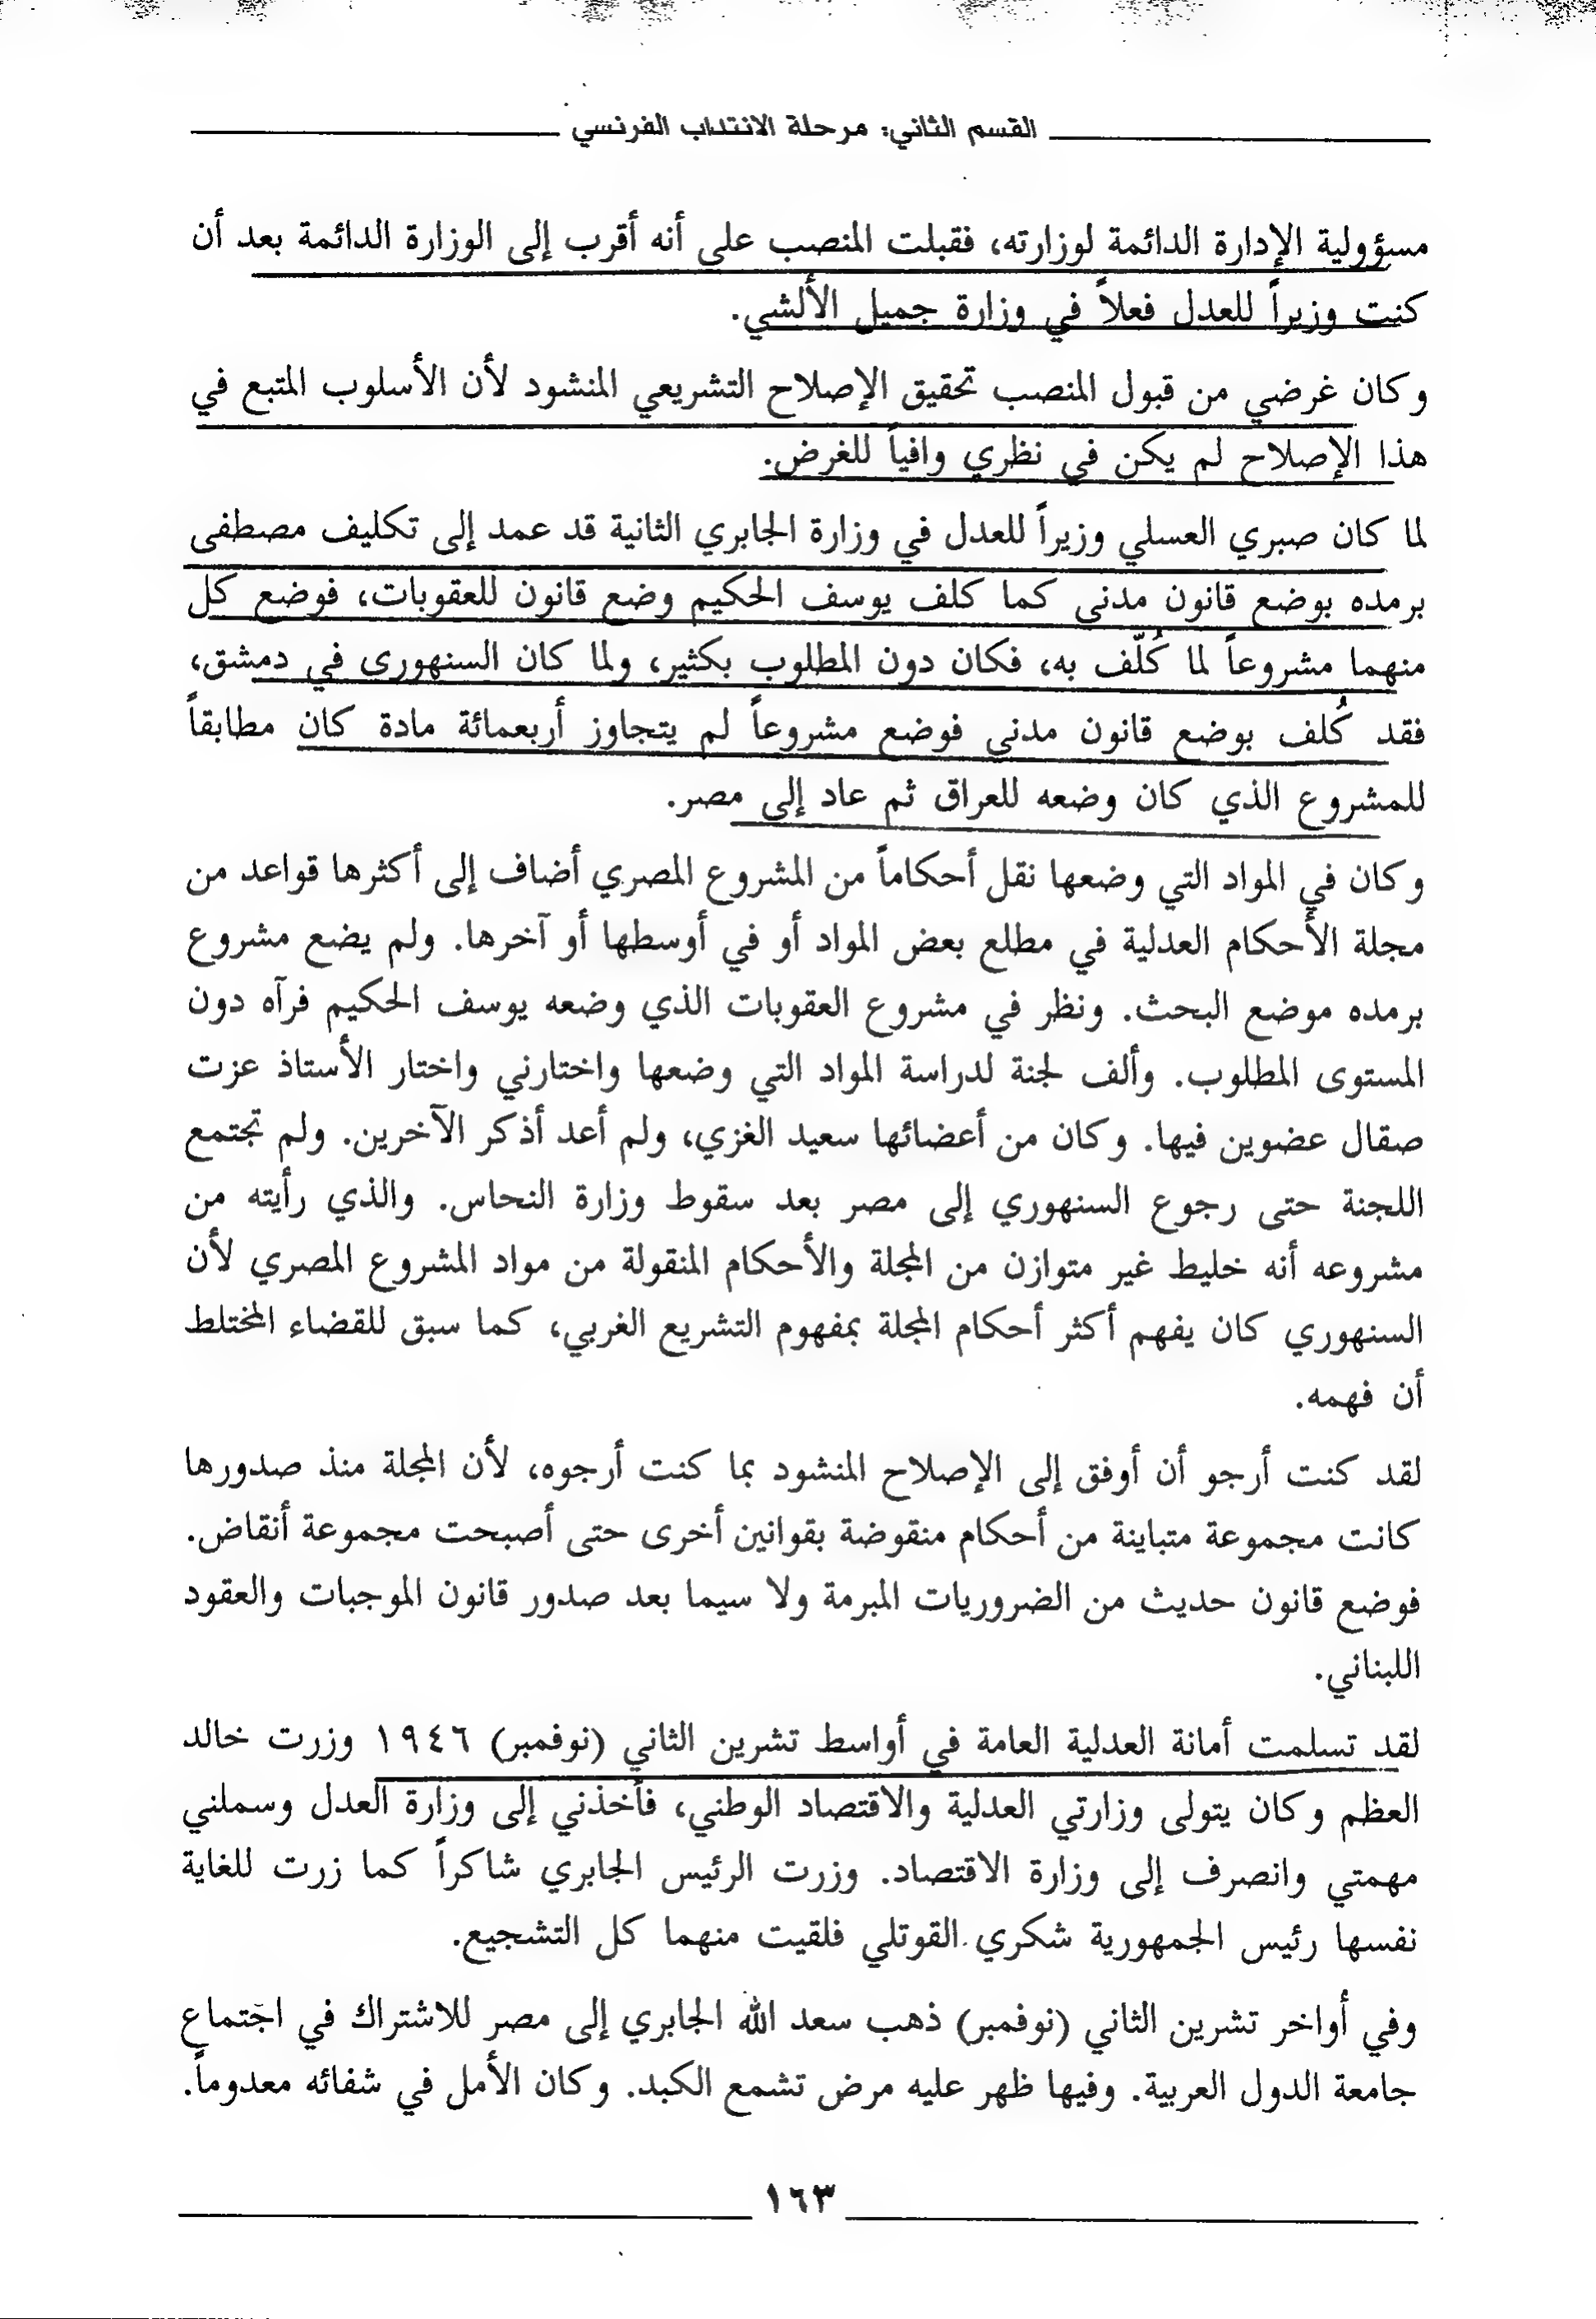 القسم الثاني: مرحلة الانتداب الفرنسي
مسؤولية الإدارة الدائمة لوزارته، فقبلت المنصب على أنه أقرب إلى الوزارة الدائمة بعد أن
كنت وزيراً للعدل فعلاً في وزارة جميل الألشي.
وكان غرضي من قبول المنصب تحقيق الإصلاح التشريعي المنشود لأن الأسلوب المتبع في
هذا الإصلاح لم يكن في نظري وافياً للغرض.
لما كان صبري العسلي وزيراً للعدل في وزارة الجابري الثانية قد عمد إلى تكليف مصطفى
برمده بوضع قانون مدني كما كلف يوسف الحكيم وضع قانون للعقوبات، فوضع كل
منهما مشروعاً لما كُلّف به، فكان دون المطلوب بكثير، ولما كان السنهوري في دمشق،
فقد كُلف بوضع قانون مدني فوضع مشروعاً لم يتجاوز أربعمائة مادة كان مطابقاً
للمشروع الذي كان وضعه للعراق ثم عاد إلى مصر.
وكان في المواد التي وضعها نقل أحكاماً من المشروع المصري أضاف إلى أكثرها قواعد من
مجلة الأحكام العدلية في مطلع بعض المواد أو في أوسطها أو آخرها. ولم يضع مشروع
برمده موضع البحث. ونظر في مشروع العقوبات الذي وضعه يوسف الحكيم فرآه دون
المستوى المطلوب. وألف لجنة لدراسة المواد التي وضعها واختارني واختار الأستاذ عزت
صقال عضوين فيها. وكان من أعضائها سعيد الغزي، ولم أعد أذكر الآخرين. ولم تجتمع
اللجنة حتى رجوع السنهوري إلى مصر بعد سقوط وزارة النحاس. والذي رأيته من
مشروعه أنه خليط غير متوازن من المجلة والأحكام المنقولة من مواد المشروع المصري لأن
السنهوري كان يفهم أكثر أحكام المجلة بمفهوم التشريع الغربي، كما سبق للقضاء المختلط
أن فهمه.
لقد كنت أرجو أن أوفق إلى الإصلاح المنشود بما كنت أرجوه، لأن المجلة منذ صدورها
كانت مجموعة متباينة من أحكام منقوضة بقوانين أخرى حتى أصبحت مجموعة أنقاض.
فوضع قانون حديث من الضروريات المبرمة ولا سيما بعد صدور قانون الموجبات والعقود
اللبناني.
لقد تسلمت أمانة العدلية العامة في أواسط تشرين الثاني (نوفمبر) ١٩٤٦ وزرت خالد
العظم وكان يتولى وزارتي العدلية والاقتصاد الوطني، فأخذني إلى وزارة العدل وسملني
مهمتي وانصرف إلى وزارة الاقتصاد. وزرت الرئيس الجابري شاكراً كما زرت للغاية
نفسها رئيس الجمهورية شكري القوتلي فلقيت منهما كل التشجيع.
وفي أواخر تشرين الثاني (نوفمبر) ذهب سعد الله الجابري إلى مصر للاشتراك في اجتماع
جامعة الدول العربية. وفيها ظهر عليه مرض تشمع الكبد. وكان الأمل في شفائه معدوماً.
١٦٣